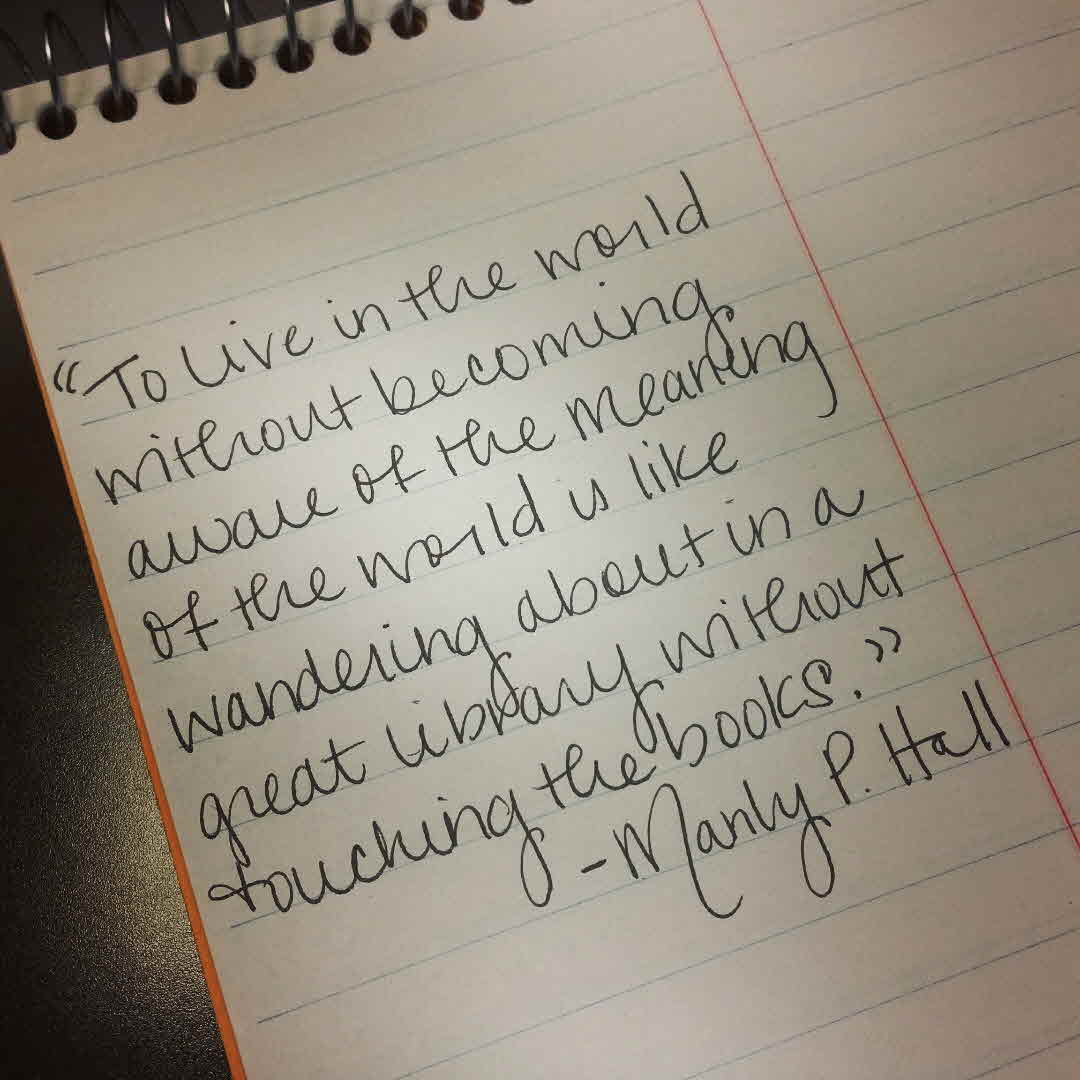 “To live in the world
without becoming
aware of the meaning
of the world is like
wandering about in a
great library without
touching the books.”
-Manly P. Hall